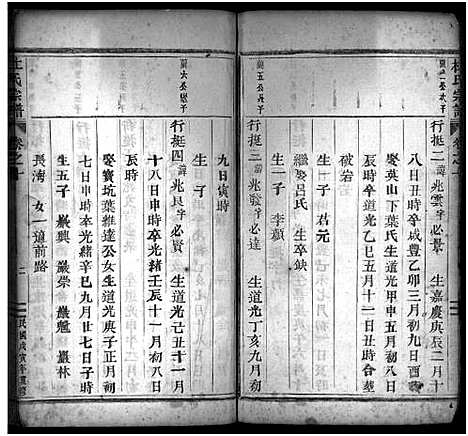 杜氏宗譜
卷之十
行挺二 諱兆雲字必羣 生嘉慶庚辰二月十
八日丑時卒咸豐乙卯三月初九日酉時
娶英山下葉氏生道光甲申五月初八日
辰時卒道光乙巳五月十二日辰時合塟
破岩
生一子 君元
繼娶呂氏 生卒缺
生一子 李顯
行挺三 諱兆發字必達 生道光丁亥九月初
九日寅時
生一子
行挺四 諱兆良字必賢 生道光己丑十一月
十八日申時卒光緒壬辰十一月初八日
辰時
娶寶坑葉維達公女生道光庚子正月初
七日申時卒光緒辛巳九月廿七日子時
生五子 嚴興 嚴榮 嚴林
長濤 女一適前路
杜氏宗譜
卷之十
民國戊寅年重修